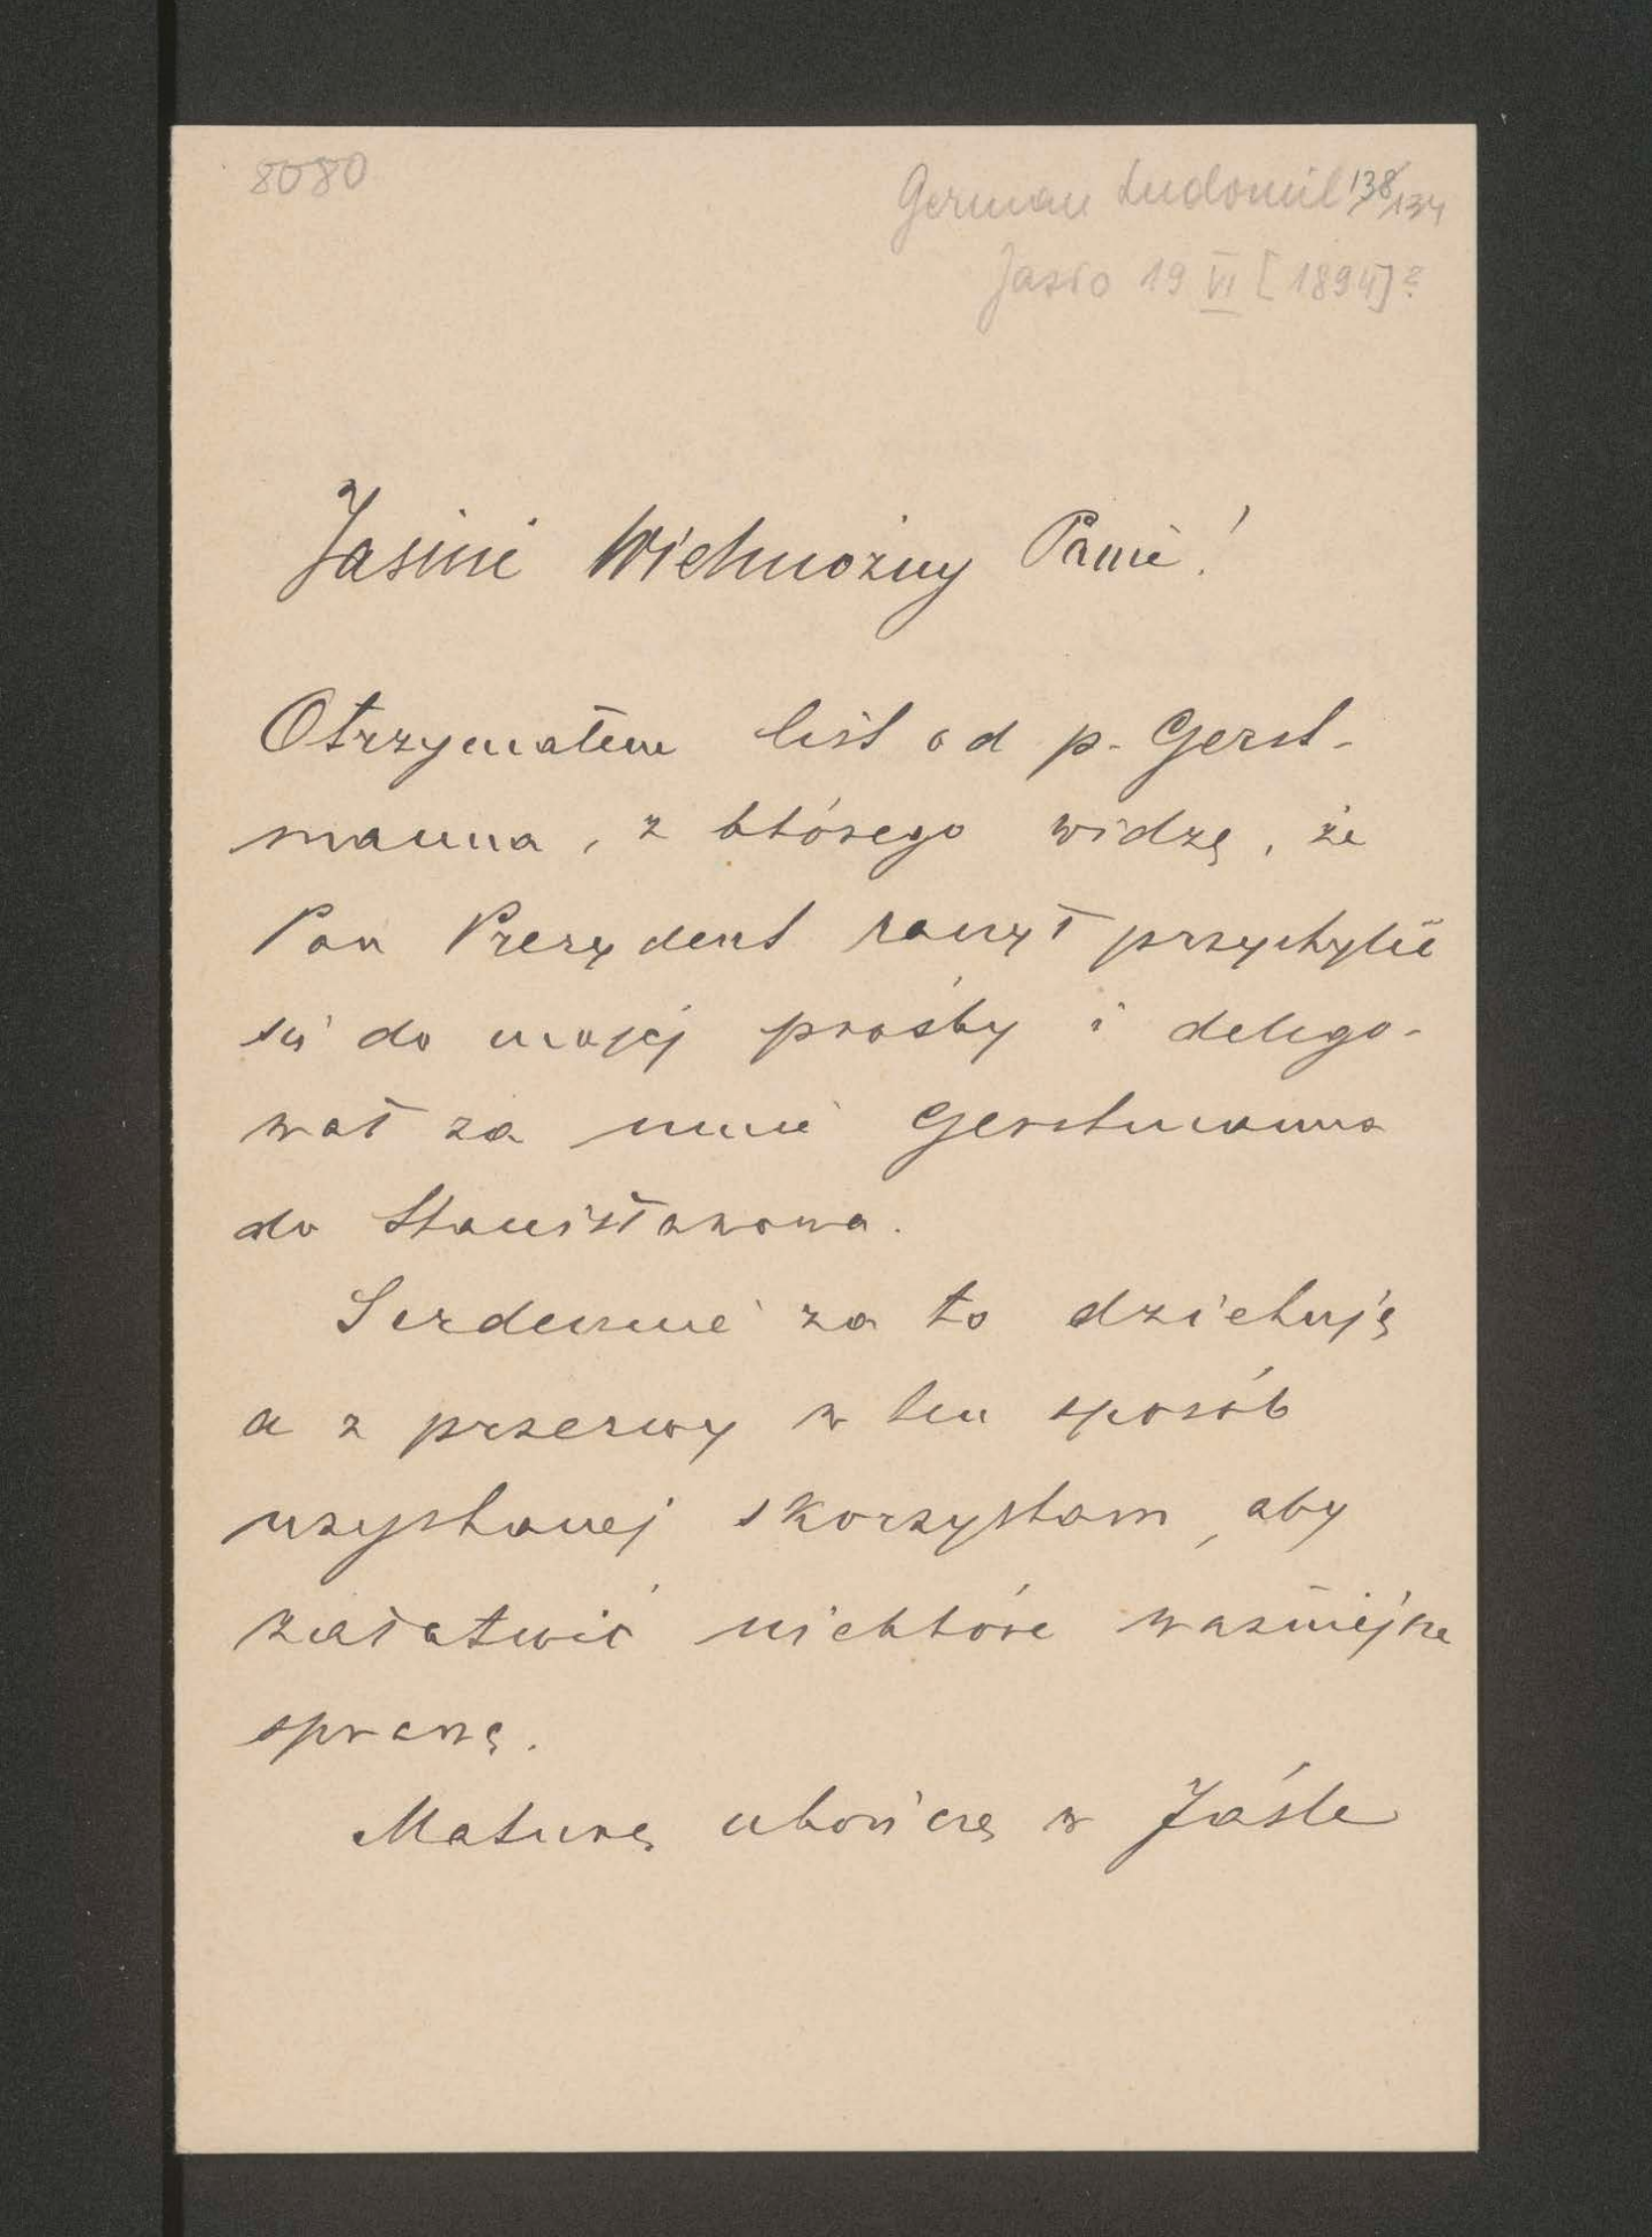 8080
German Ludomil 138/134
Jasło 19 VI [1894]?
Jaśnie Wielmożny Panie!
Otrzymałem list od p. Gerst-
manna, z którego widzę, że
Pan Prezydent raczył przychylić
się do mojej prośby i delego-
wał za mnie Gerstmanna
do Stanisławowa.
Serdecznie za to dziękuję
a z przerwy w ten sposób
uzyskanej skorzystam, aby
załatwić niektóre ważniejsze
sprawy.
Maturę ukończę w Jaśle